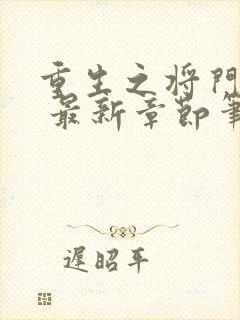 重生之将門
最新章節筆
遲昭平